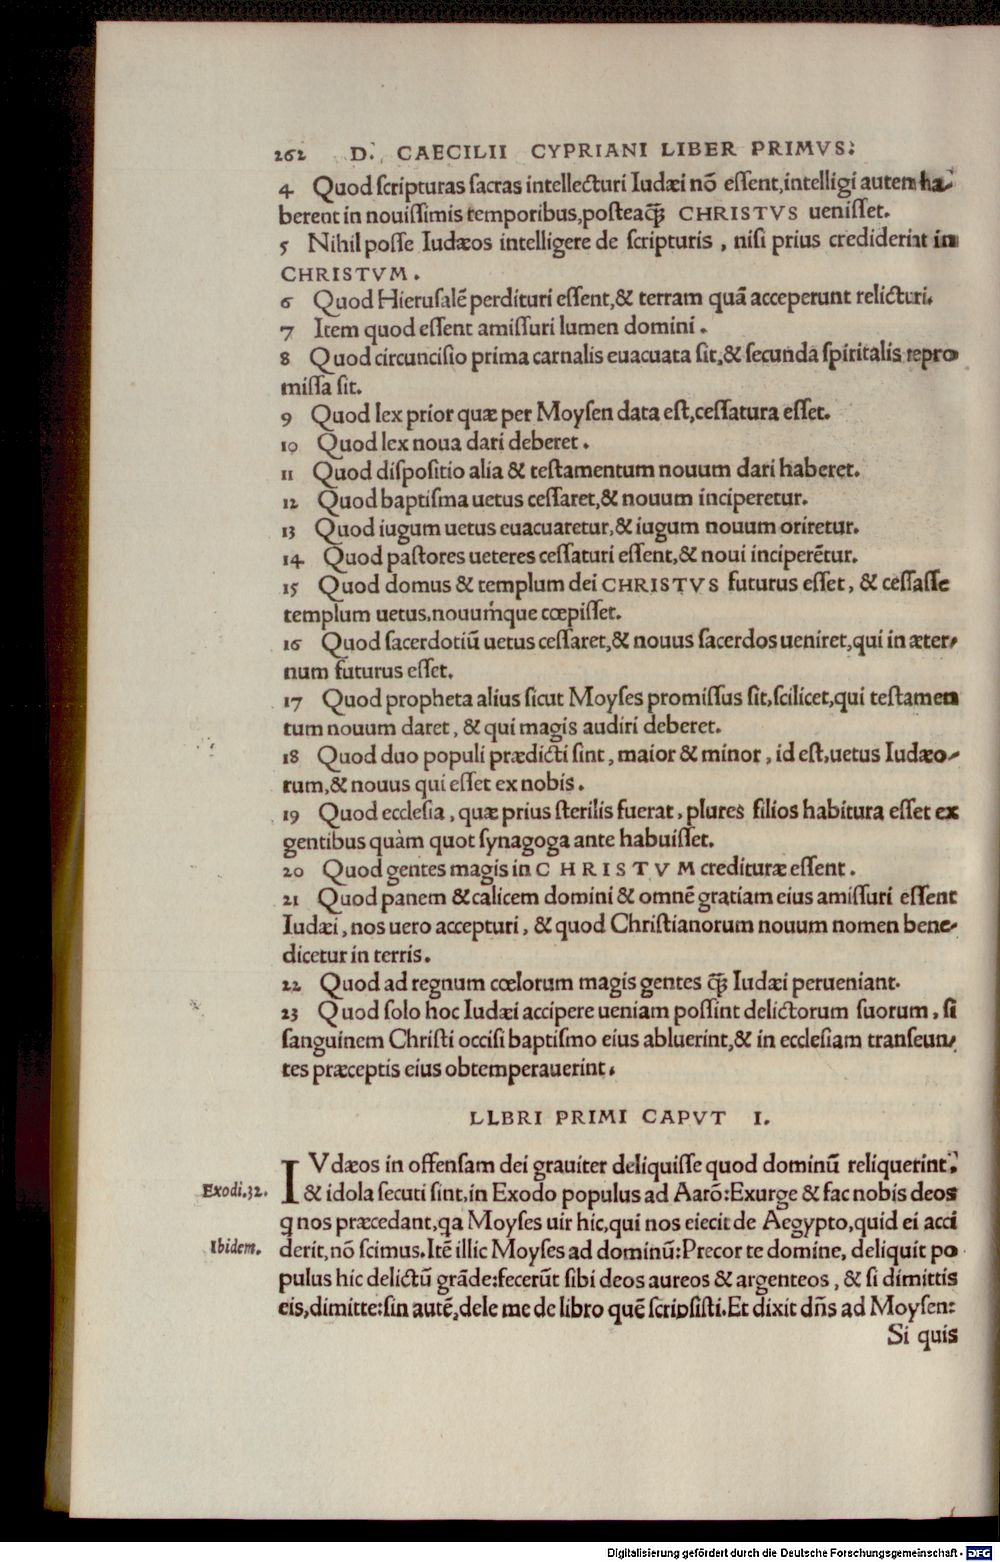 262 D. CAECILII CYPRIANI LIBER PRIMVS.
4 Quod scripturas sacras intellecturi Iudæi nō essent,intelligi autem ha-
berent in nouissimis temporibus,posteaꝗ̃ CHRISTVS uenisset.
5 Nihil posse Iudæos intelligere de scripturis , nisi prius crediderint in
CHRISTVM .
6 Quod Hierusalē perdituri essent,& terram quā acceperunt relicturi.
7 Item quod essent amissuri lumen domini .
8 Quod circuncisio prima carnalis euacuata sit,& secunda spiritalis repro
missa sit.
9 Quod lex prior quæ per Moysen data est,cessatura esset.
10 Quod lex noua dari deberet .
11 Quod dispositio alia & testamentum nouum dari haberet.
12 Quod baptisma uetus cessaret,& nouum inciperetur.
13 Quod iugum uetus euacuaretur,& iugum nouum oriretur.
14 Quod pastores ueteres cessaturi essent,& noui inciperētur.
15 Quod domus & templum dei CHRISTVS futurus esset , & cessasse
templum uetus,nouumq́ue cœpisset.
16 Quod sacerdotiū uetus cessaret,& nouus sacerdos ueniret,qui in æter-
num futurus esset.
17 Quod propheta alius sicut Moyses promissus sit,scilicet,qui testamen
tum nouum daret , & qui magis audiri deberet.
18 Quod duo populi prædicti sint , maior & minor , id est,uetus Iudæo-
rum,& nouus qui esset ex nobis .
19 Quod ecclesia , quæ prius sterilis fuerat , plures filios habitura esset ex
gentibus quàm quot synagoga ante habuisset.
20 Quod gentes magis in CHRISTVM credituræ essent .
21 Quod panem & calicem domini & omnē gratiam eius amissuri essent
Iudæi , nos uero accepturi , & quod Christianorum nouum nomen bene-
dicetur in terris .
22 Quod ad regnum cœlorum magis gentes ꝗ̃ Iudæi perueniant.
23 Quod solo hoc Iudæi accipere ueniam possint delictorum suorum , si
sanguinem Christi occisi baptismo eius abluerint,& in ecclesiam transeun-
tes præceptis eius obtemperauerint .
LLBRI PRIMI CAPVT I.
IVdæos in offensam dei grauiter deliquisse quod dominū reliquerint,
Exodi.32. & idola secuti sint,in Exodo populus ad Aarō:Exurge & fac nobis deos
q nos præcedant,qa Moyses uir hic,qui nos eiecit de Aegypto,quid ei acci
Ibidem. derit,nō scimus.Itē illic Moyses ad dominū:Precor te domine, deliquit po
pulus hic delictū grāde:fecerūt sibi deos aureos & argenteos , & si dimittis
eis,dimitte:sin autē,dele me de libro quē scripsisti.Et dixit dñs ad Moysen:
Si quis
Digitalisierung gefördert durch die Deutsche Forschungsgemeinschaft - DFG